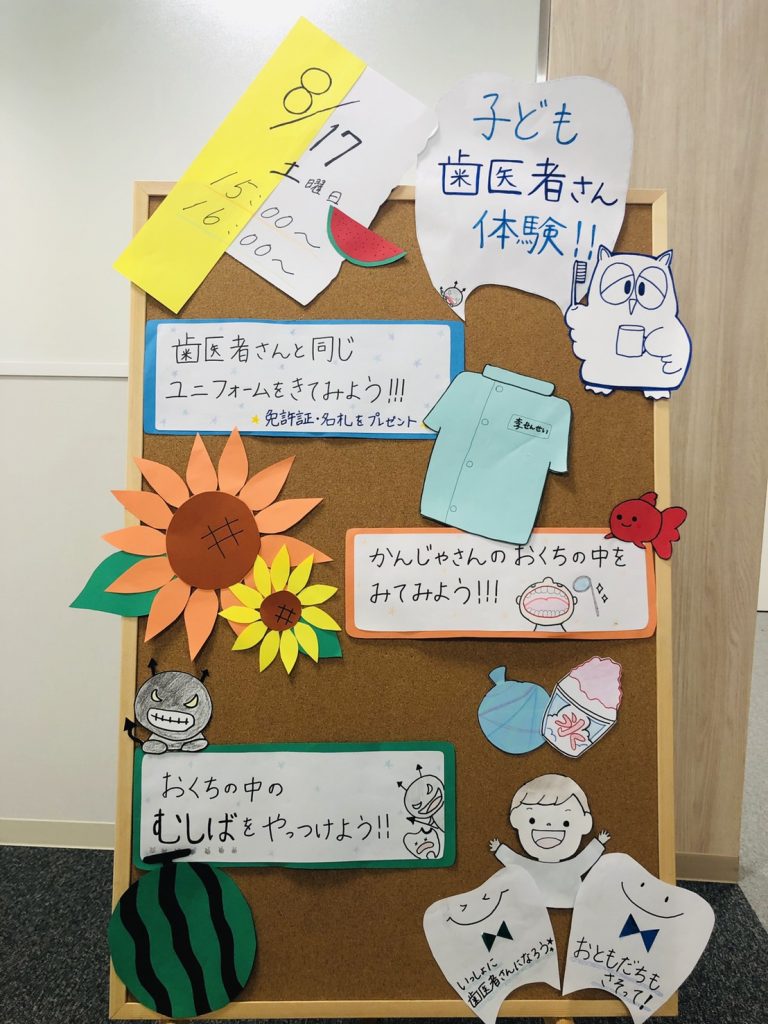 8/17
土曜日
15:00~
16:00~
子ども
歯医者さん
体験!!
歯医者さんと同じ
ユニフォームをきてみよう!!!
★免許証・名札をプレゼント★
李せんせい
かんじゃさんのおくちの中を
みてみよう!!!
おくちの中の
むしばをやっつけよう!!
いっしょに
歯医者さんになろう!
おともだちも
さそって!